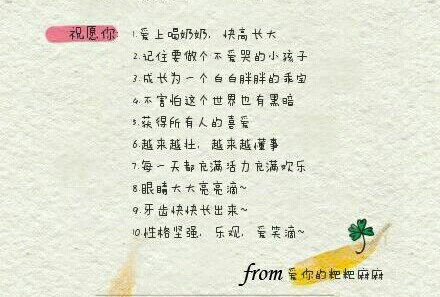 祝愿你:
1.爱上喝奶奶，快高长大
2.记住要做个不爱哭的小孩子
3.成长为一个白白胖胖的乖宝
4.不害怕这个世界也有黑暗
5.获得所有人的喜爱
6.越来越壮，越来越懂事
7.每一天都充满活力充满欢乐
8.眼睛大大亮亮滴~
9.牙齿快快长出来~
10.性格坚强，乐观，爱笑滴~
from 爱你的粑粑麻麻